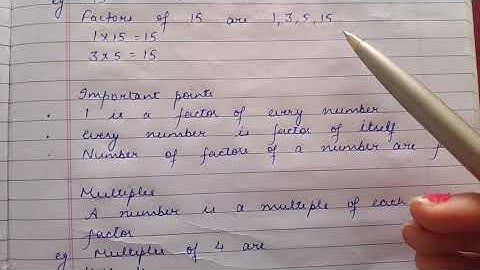 eg
Factors of 15 are 1, 3, 5, 15
1 x 15 = 15
3 x 5 = 15
Important points
. 1 is a factor of every number
. every number is factor of itself
. Number of factors of a number are f
Multiples
A number is a multiple of each
factor
eg Multiples of 4 are